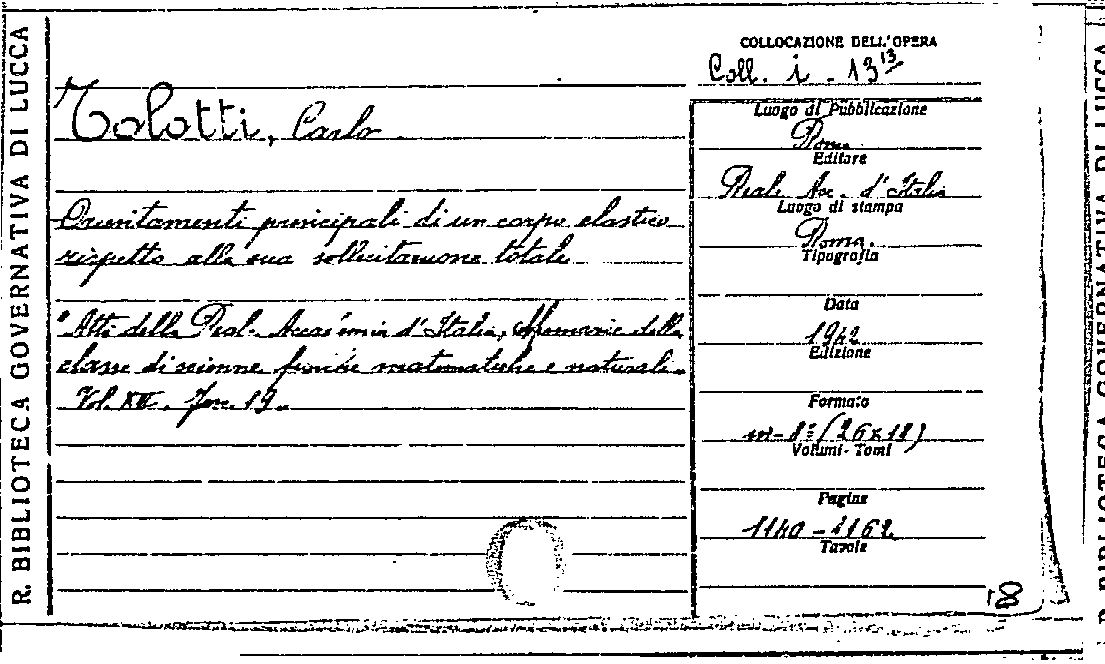 R. BIBLIOTECA GOVERNATIVA DI LUCCA
Tolotti, Carlo
Orientamenti principali di un corpo elastico
rispetto alla sua sollecitazione totale
"Atti della Real. Accademia d'Italia, Memorie della
classe di scienze fisiche matematiche e naturali"
Vol. XIII. Fasc. 19.
COLLOCAZIONE DELL'OPERA
Coll. i - 13¹³
Luogo di Pubblicazione
Roma
Editore
Real. Acc. d'Italia
Luogo di stampa
Roma.
Tipografia
Data
1942
Edizione
Formato
in-8º (26x18)
Volumi - Tomi
Pagine
1140 - 1162
Tavole